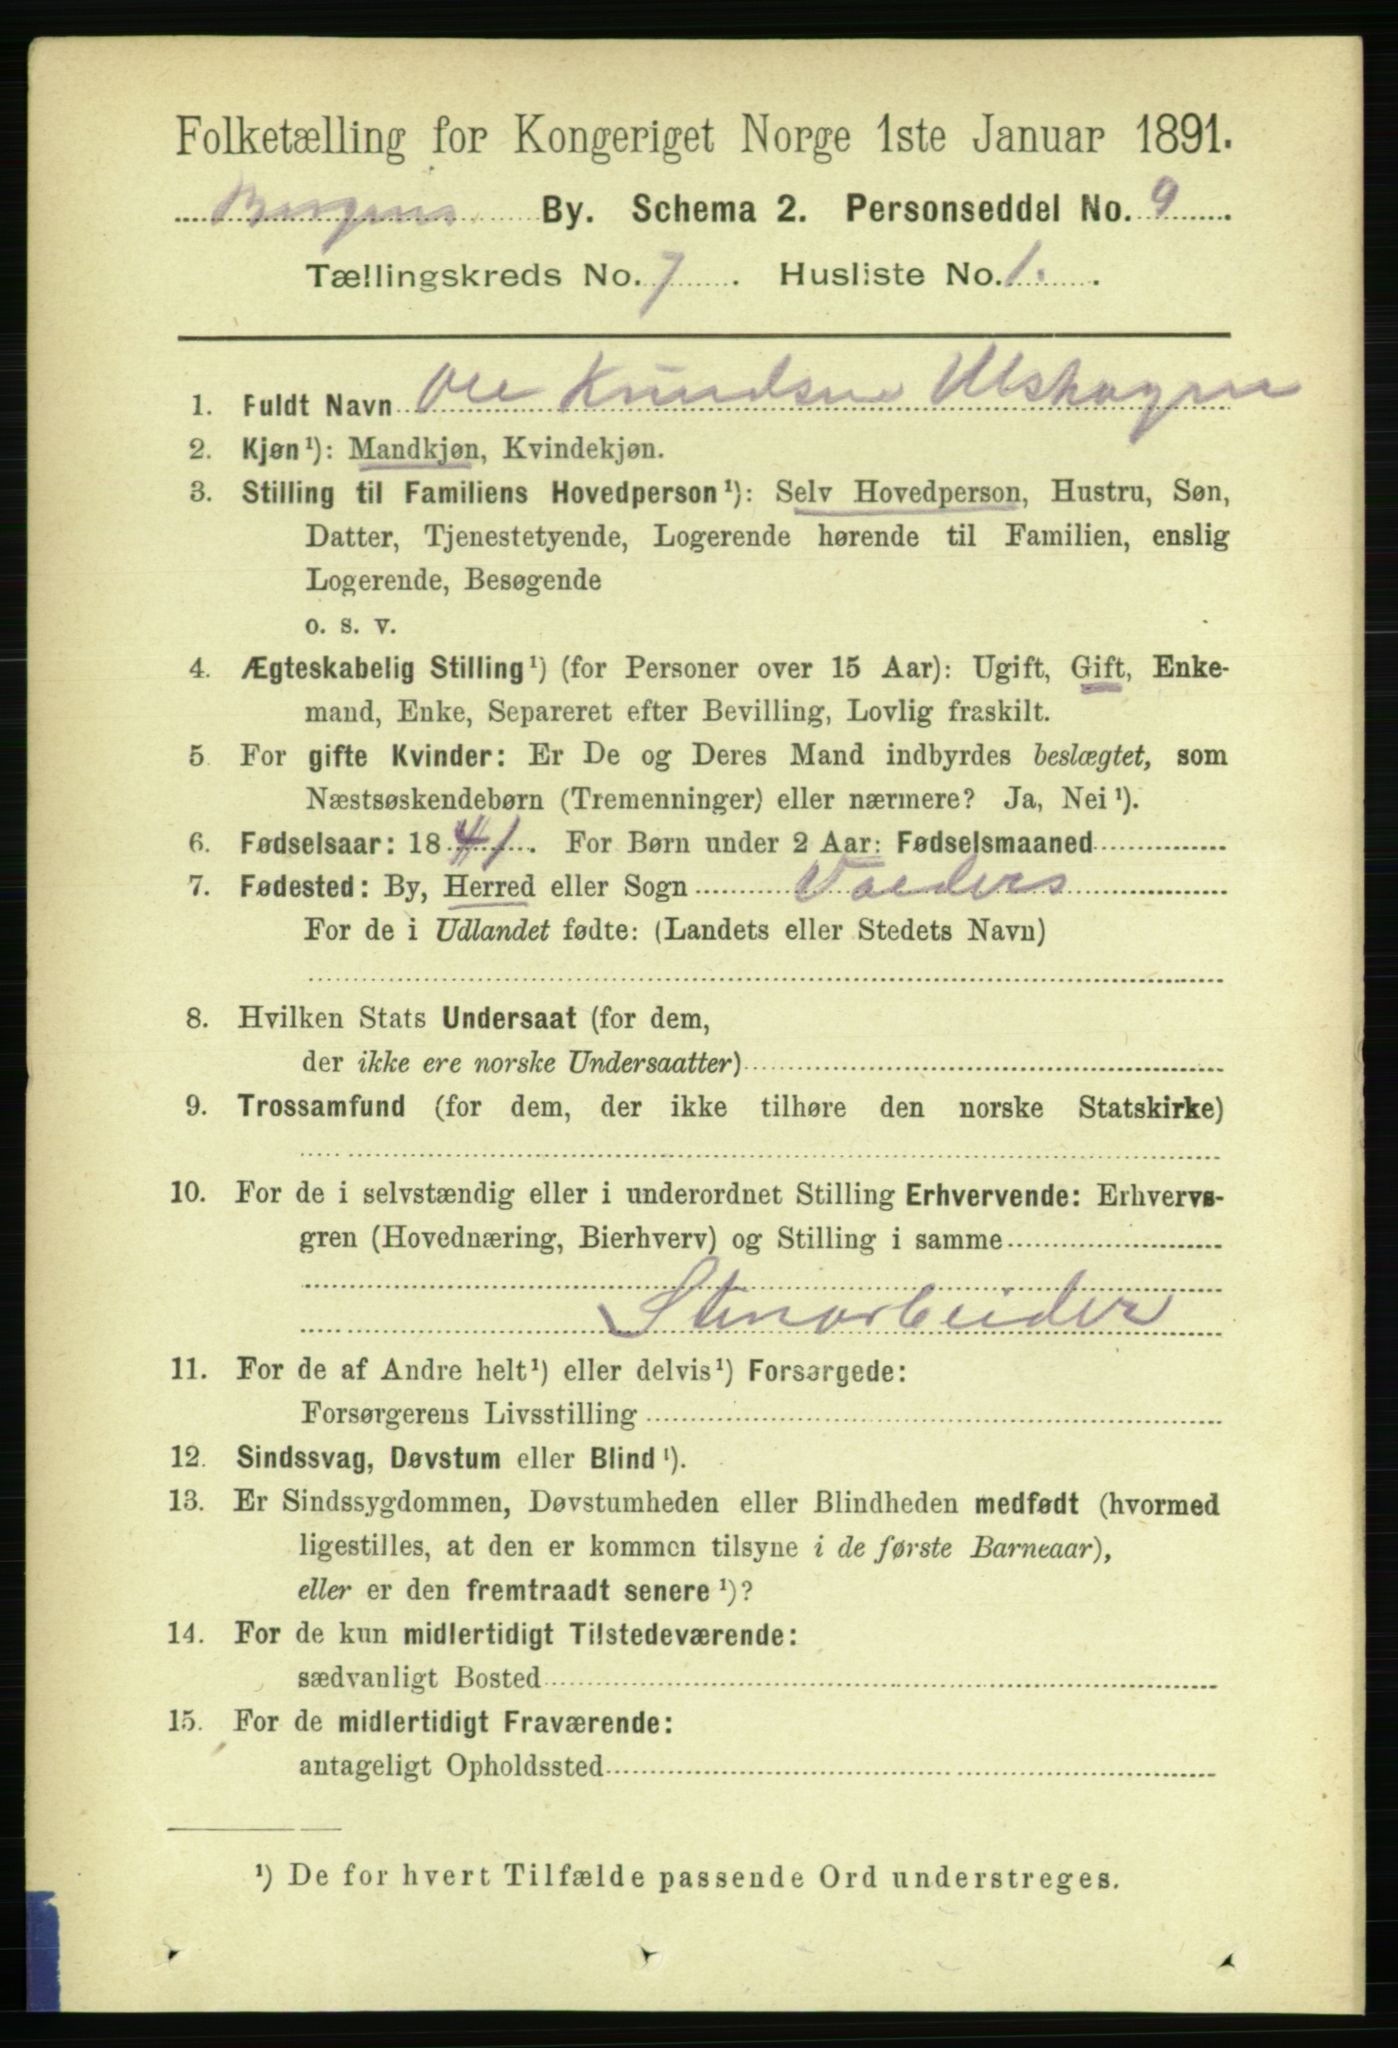 Folketælling for Kongeriget Norge 1ste Januar 1891.
Bergens By. Schema 2. Personseddel No. 9.
Tællingskreds No. 7. Husliste No. 1.
1. Fuldt Navn Ole Knudsen Ulshagen
2. Kjøn¹): Mandkjøn, Kvindekjøn.
3. Stilling til Familiens Hovedperson¹): Selv Hovedperson, Hustru, Søn,
Datter, Tjenestetyende, Logerende hørende til Familien, enslig
Logerende, Besøgende
o. s. v.
4. Ægteskabelig Stilling¹) (for Personer over 15 Aar): Ugift, Gift, Enke-
mand, Enke, Separeret efter Bevilling, Lovlig fraskilt.
5 For gifte Kvinder: Er De og Deres Mand indbyrdes beslægtet, som
Næstsøskendebørn (Tremenninger) eller nærmere? Ja, Nei¹).
6. Fødselsaar: 1841. For Børn under 2 Aar: Fødselsmaaned
7. Fødested: By, Herred eller Sogn Valders
For de i Udlandet fødte: (Landets eller Stedets Navn)
8. Hvilken Stats Undersaat (for dem,
der ikke ere norske Undersaatter)
9. Trossamfund (for dem, der ikke tilhøre den norske Statskirke)
10. For de i selvstændig eller i underordnet Stilling Erhvervende: Erhvervs-
gren (Hovednæring, Bierhverv) og Stilling i samme
Stenarbeider
11. For de af Andre helt¹) eller delvis¹) Forsørgede:
Forsørgerens Livsstilling
12. Sindssvag, Døvstum eller Blind¹).
13. Er Sindssygdommen, Døvstumheden eller Blindheden medfødt (hvormed
ligestilles, at den er kommen tilsyne i de første Barneaar),
eller er den fremtraadt senere¹)?
14. For de kun midlertidigt Tilstedeværende:
sædvanligt Bosted
15. For de midlertidigt Fraværende:
antageligt Opholdssted
¹) De for hvert Tilfælde passende Ord understreges.